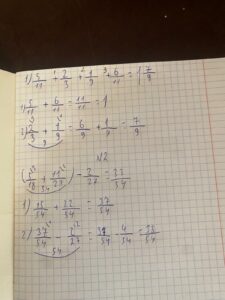 1) 5/11 + 2/3 + 1/9 + 6/11 = 1 7/9
1) 5/11 + 6/11 = 11/11 = 1
2) 2/3 + 1/9 = 6/9 + 1/9 = 7/9
9
N2
(5/18 + 11/27) - 2/27 = 33/54
54
1) 15/54 + 22/54 = 37/54
2) 37/54 - 2/27 = 37/54 - 4/54 = 33/54
54